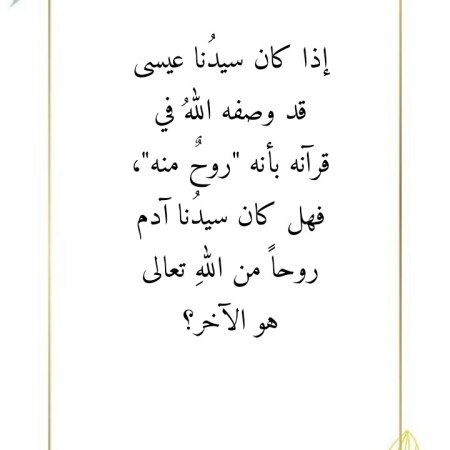 إذا كان سيدُنا عيسى
قد وصفه اللهُ في
قرآنه بأنه "روحٌ منه"،
فهل كان سيدُنا آدم
روحاً من اللهِ تعالى
هو الآخر؟